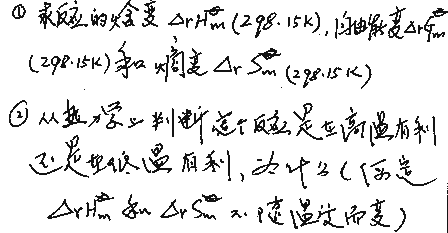 ① 求反应的焓变 ΔrHm⊖(298.15K),自由能变ΔrGm⊖
(298.15K)和熵变ΔrSm⊖(298.15K)
② 从热力学上判断这个反应是在高温有利
还是在低温有利,为什么(假定
ΔrHm⊖和ΔrSm⊖不随温度而变)